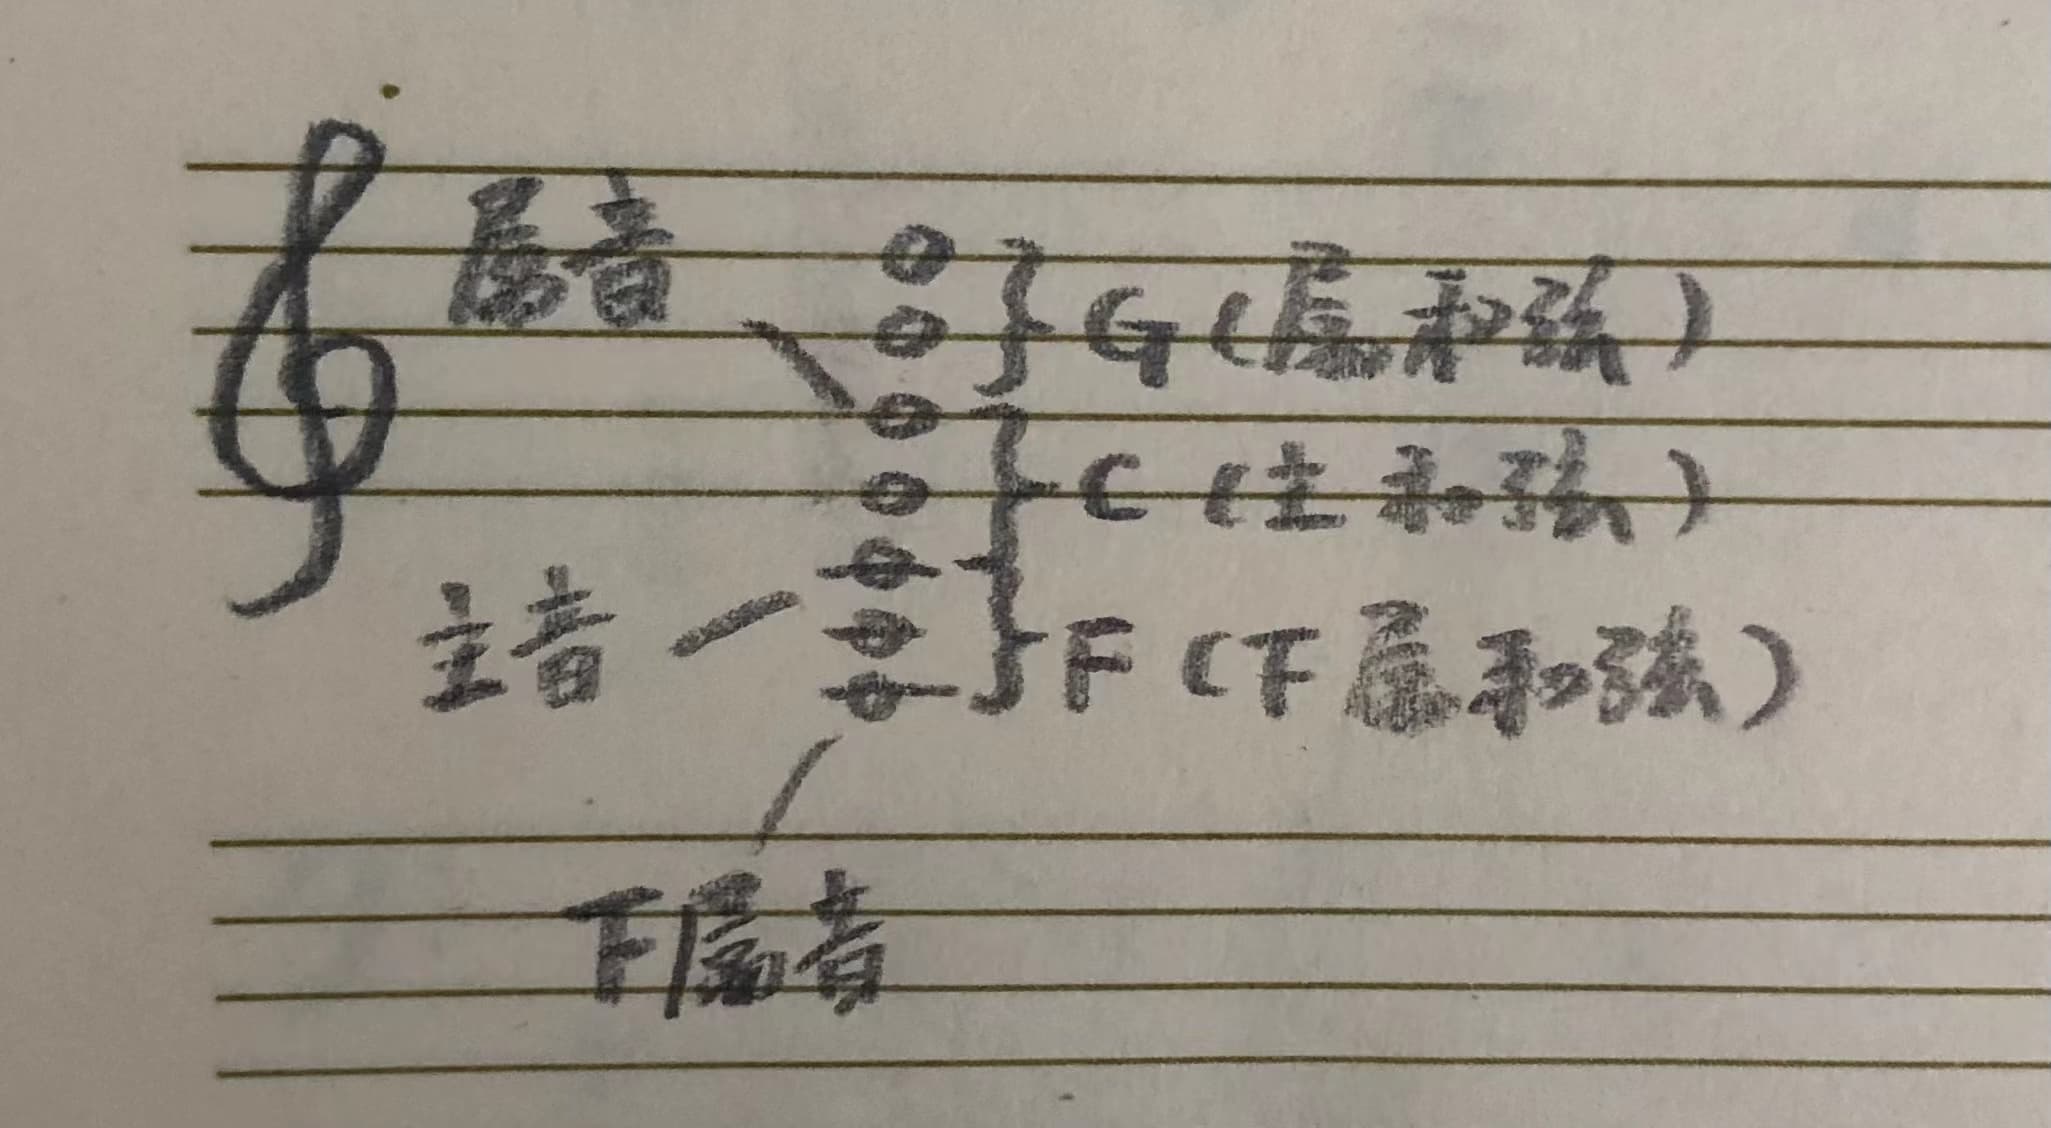 属音
G(属和弦)
C(主和弦)
主音
F(下属和弦)
下属音